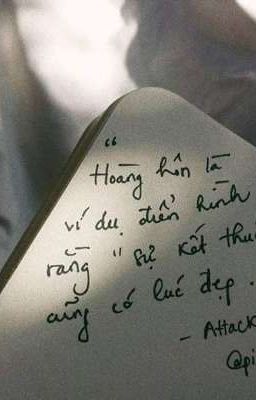 “
Hoāng hôn là
ví dụ điển hình
rằng " sự kết thú
cũng có lúc đẹp .
- Attack
@pi